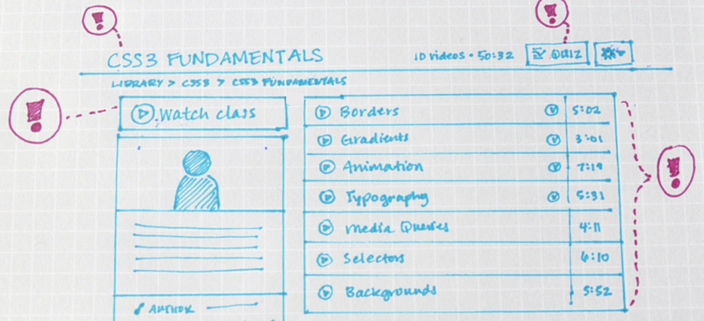 CSS3 FUNDAMENTALS 10 videos • 50:32 QUIZ
LIBRARY > CSS3 > CSS3 FUNDAMENTALS
Watch class
Borders 5:02
Gradients 3:01
Animation 7:19
Typography 5:31
Media Queries 4:11
Selectors 6:10
Backgrounds 5:52
AUTHOR